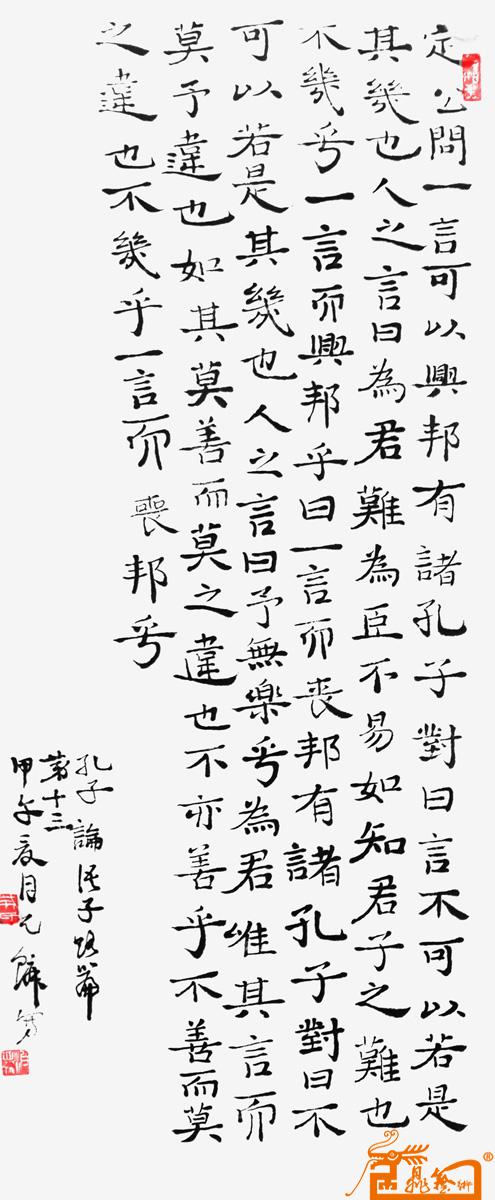 定公問一言可以興邦有諸孔子對曰言不可以若是
其幾也人之言曰為君難為臣不易如知君子之難也
不幾乎一言而興邦乎曰一言而喪邦有諸孔子對曰不
可以若是其幾也人之言曰予無樂乎為君唯其言而
莫予違也如其莫善而莫之違也不亦善乎不善而莫
之違也不幾乎一言而喪邦乎
孔子論語子路篇
第十三
甲午夏月